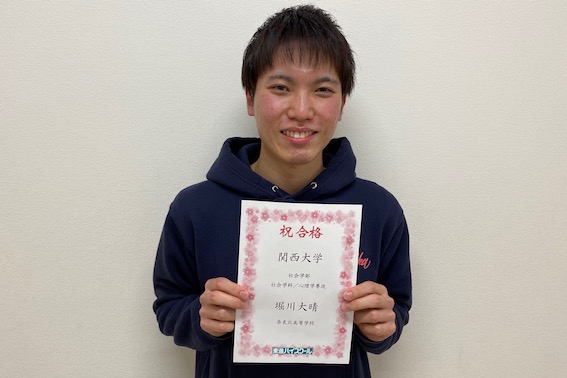 祝合格
関西大学
社会学部
社会学科/心理学専攻
堀川大晴
奈良北高等学校
東進ハイスクール